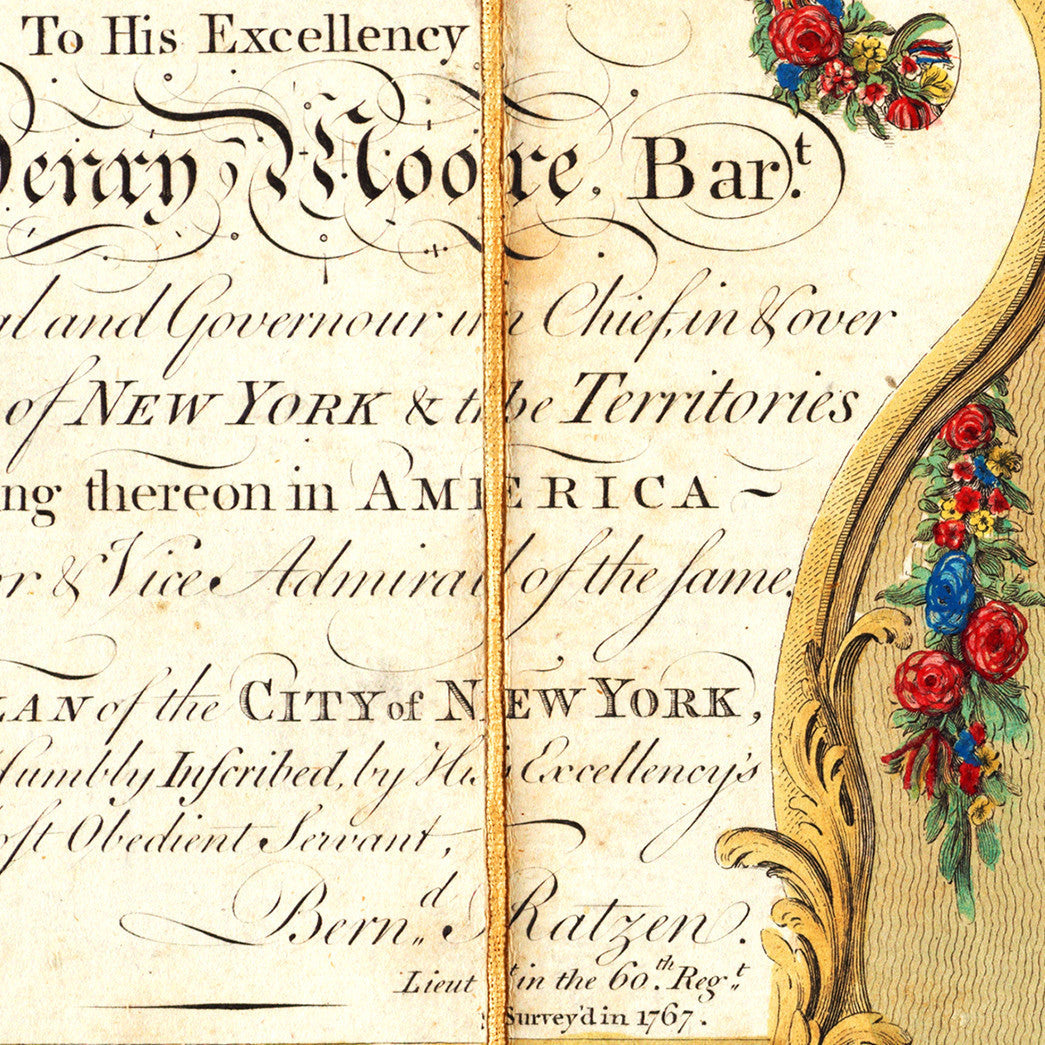 To His Excellency
Henry Moore, Bar.t
al and Governour in Chief, in & over
of NEW YORK & the Territories
ng thereon in AMERICA ~
or & Vice Admiral of the same.
LAN of the CITY of NEW YORK,
Humbly Inscribed, by His Excellency's
ost Obedient Servant,
Bern.d Ratzen.
Lieut.t in the 60.th Reg.t
Survey'd in 1767.